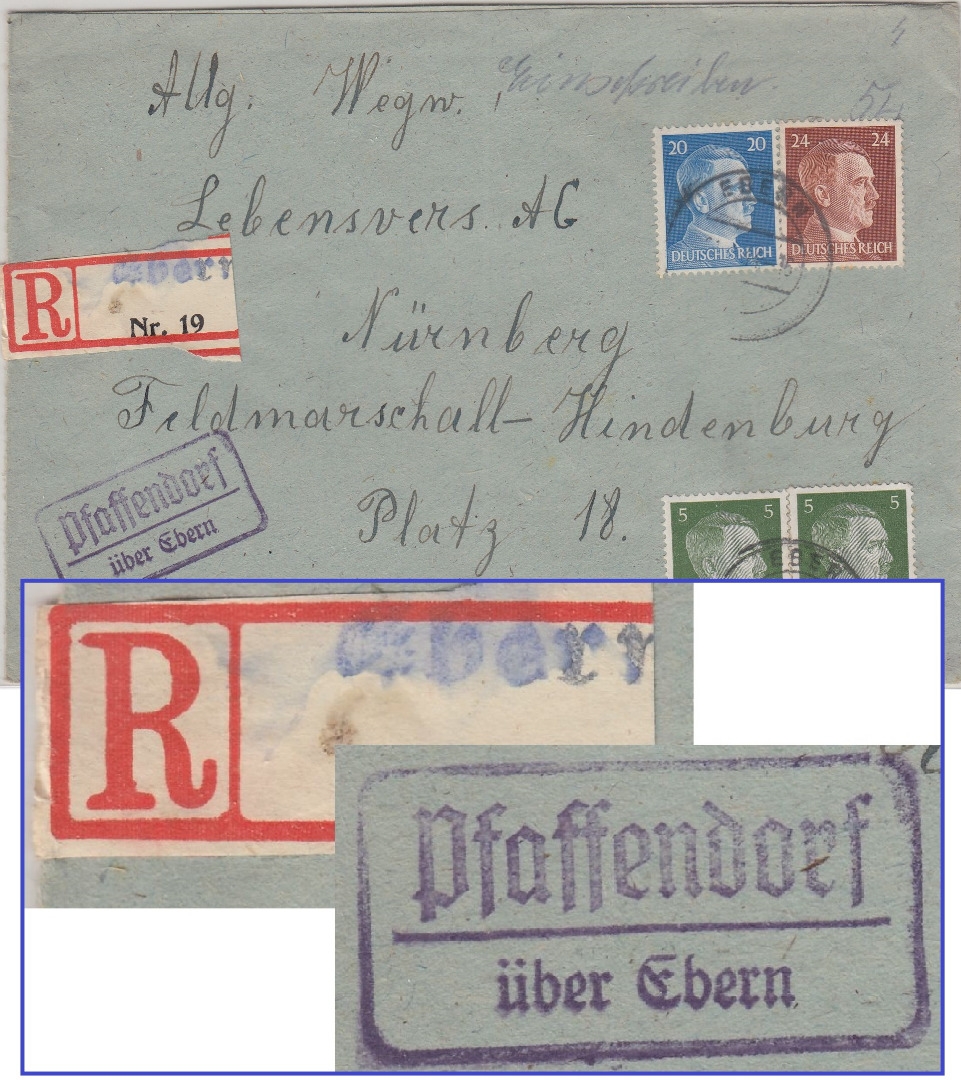 Einschreiben.
4
54
Allg. Wegw.
Lebensvers. AG
Nürnberg
Feldmarschall- Hindenburg
Platz 18.
20 20
DEUTSCHES REICH
24 24
DEUTSCHES REICH
EBERN
R Ebern
Nr. 19
Pfaffendorf
über Ebern
5 5
5 5
EBERN
R Ebern
Pfaffendorf
über Ebern